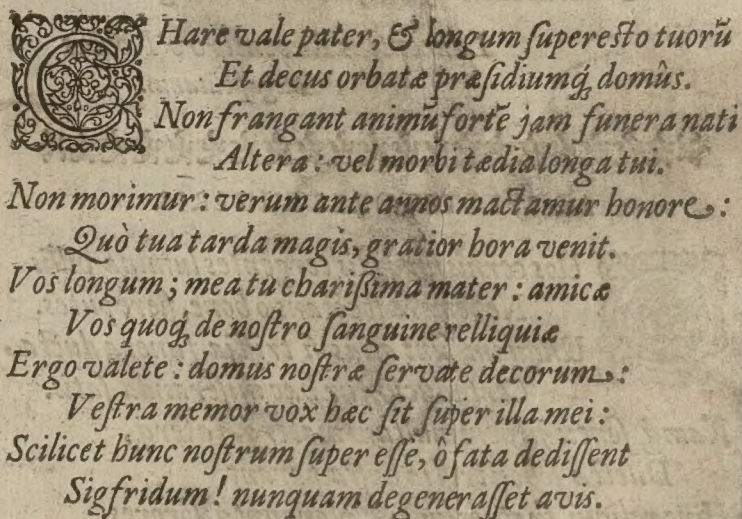 CHare vale pater, & longum ſupereſto tuorũ
Et decus orbatæ præſidiumq́; domûs.
Non frangant animũ fortẽ jam funera nati
Altera: vel morbi tædia longa tui.
Non morimur: verum ante annos mactamur honore:
Quò tua tarda magis, gratior hora venit.
Vos longum; mea tu chariſsima mater: amicæ
Vos quoq́; de noſtro ſanguine relliquiæ
Ergo valete: domus noſtræ ſervate decorum:
Veſtra memor vox hæc ſit ſuper illa mei:
Scilicet hunc noſtrum ſuper eſſe, ô fata dediſſent
Sigfridum! nunquam degeneraſſet avis.